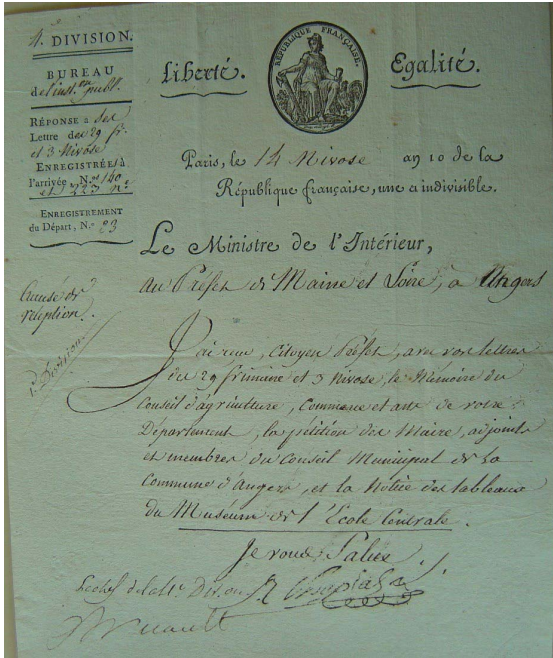 4. DIVISION.
BUREAU
de l'inst.on publ.
RÉPONSE a ses
Lettre des 29 fr.
et 3 Nivose
ENREGISTRÉES à
l'arrivée N.os 140
et 223
ENREGISTREMENT
du Départ, N.o 23
Liberté.
RÉPUBLIQUE FRANÇAISE.
Egalité.
Paris, le 14 Nivose an 10 de la
République française, une et indivisible.
Le Ministre de l'Intérieur,
au Préfet de Maine et Loire, à Angers
accuse de
réception.
1.e Division
J'ai reçu, Citoyen Préfet, avec vos lettres
du 29 frimaire et 3 Nivose, le Mémoire du
Conseil d'agriculture, Commerce et arts de votre
Département, la pétition des Maire, adjoints
et membres du Conseil Municipal de la
Commune d'Angers, et la Notice des tableaux
du Museum de l'Ecole Centrale.
Je vous Salue.
Le chef de la 4e Division